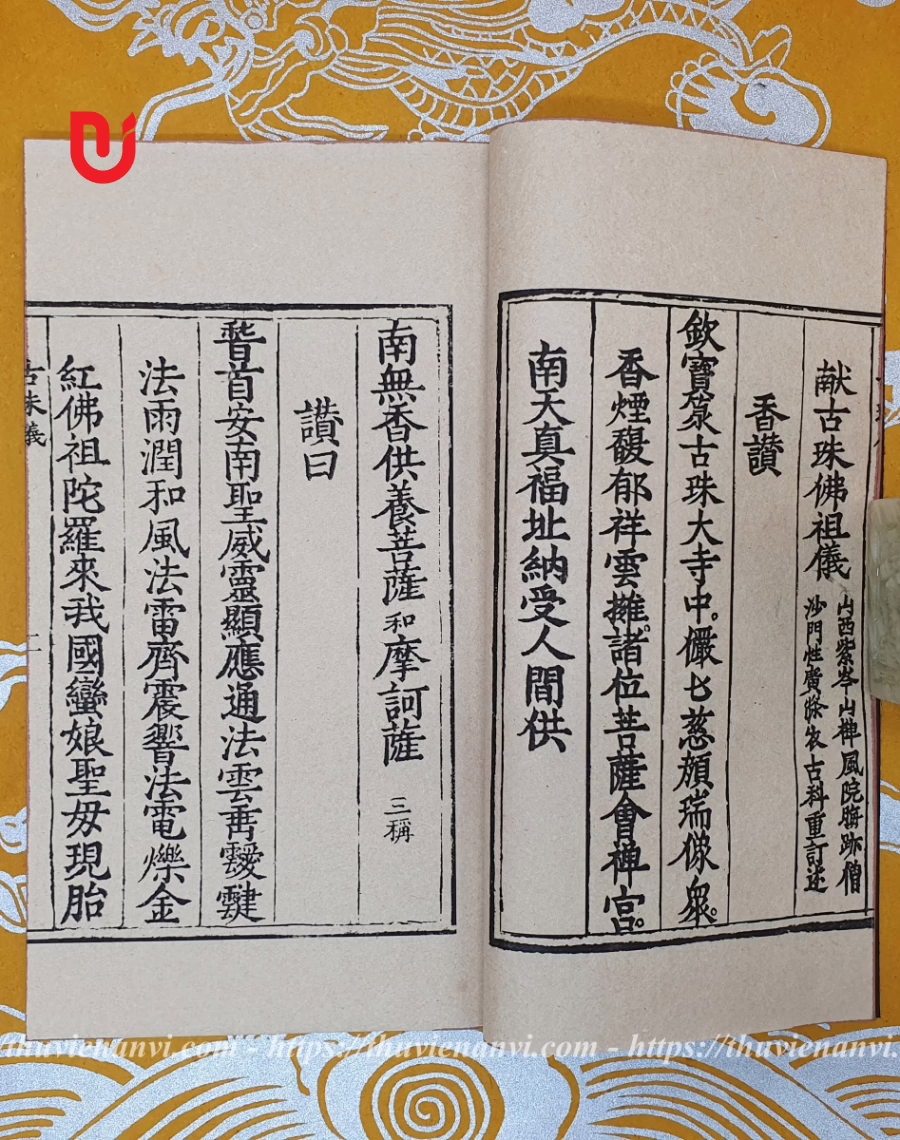 献古珠佛祖儀
山西紫岑山禅風院跡僧
沙門性廣古科重訂述
香讃
欽寳篆古珠大寺中。儼七慈顔瑞像衆。
香煙馥郁祥雲擁。諸位菩薩會禅宫。
南天真福址納受人間供
南無香供養菩薩和摩訶薩 三稱
讃曰
首安南聖威靈顯應通法雲冉靉靆
法雨潤和風法雷齊震響法電爍金
紅佛祖陀羅來我國蠻娘聖毋現胎
古珠儀
thuvienanvi.com - https://thuvienanvi.com - https://thuvienanvi.